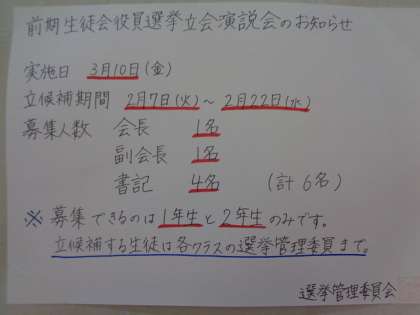 前期生徒会役員選挙立会演説会のお知らせ
実施日 3月10日(金)
立候補期間 2月7日(火)～2月22日(水)
募集人数 会長 1名
副会長 1名
書記 4名 (計6名)
※ 募集できるのは1年生と2年生のみです。
立候補する生徒は各クラスの選挙管理委員まで。
選挙管理委員会